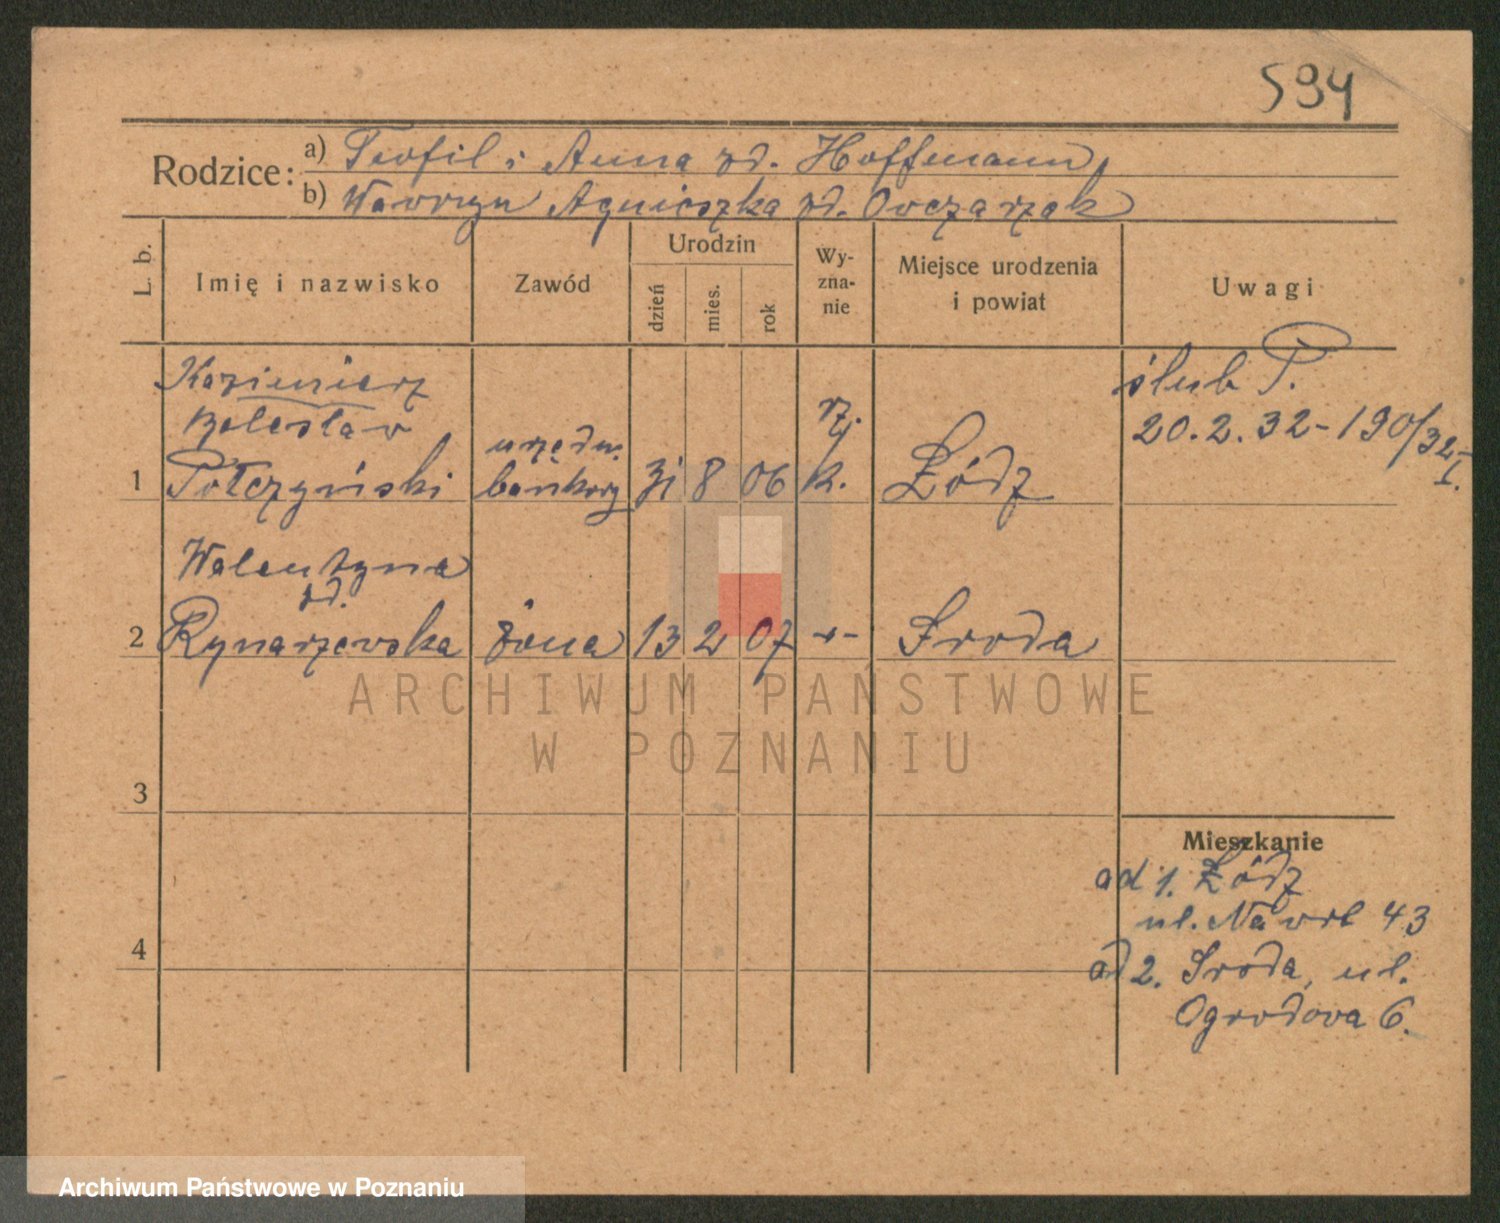 594
Rodzice: a) Teofil i Anna zd. Hoffmann,
b) Wawrzyn Agnieszka zd. Owczarzak
L. b. Imię i nazwisko Zawód Urodzin dzień mies. rok Wy-zna-nie Miejsce urodzenia i powiat Uwagi
Kazimierz
Bolesław
1 Połczyński urzędn. bankowy 31 8 06 rz. k. Łódź
ślub P.
20.2.32 - 190/32 I.
Walentyna
zd.
2 Rynarzewska żona 13 2 07 -"- Środa
ARCHIWUM PAŃSTWOWE
W POZNANIU
3
Mieszkanie
ad 1. Łódź
ul. Nawrot 43
4
ad 2. Środa, ul.
Ogrodowa 6.
Archiwum Państwowe w Poznaniu